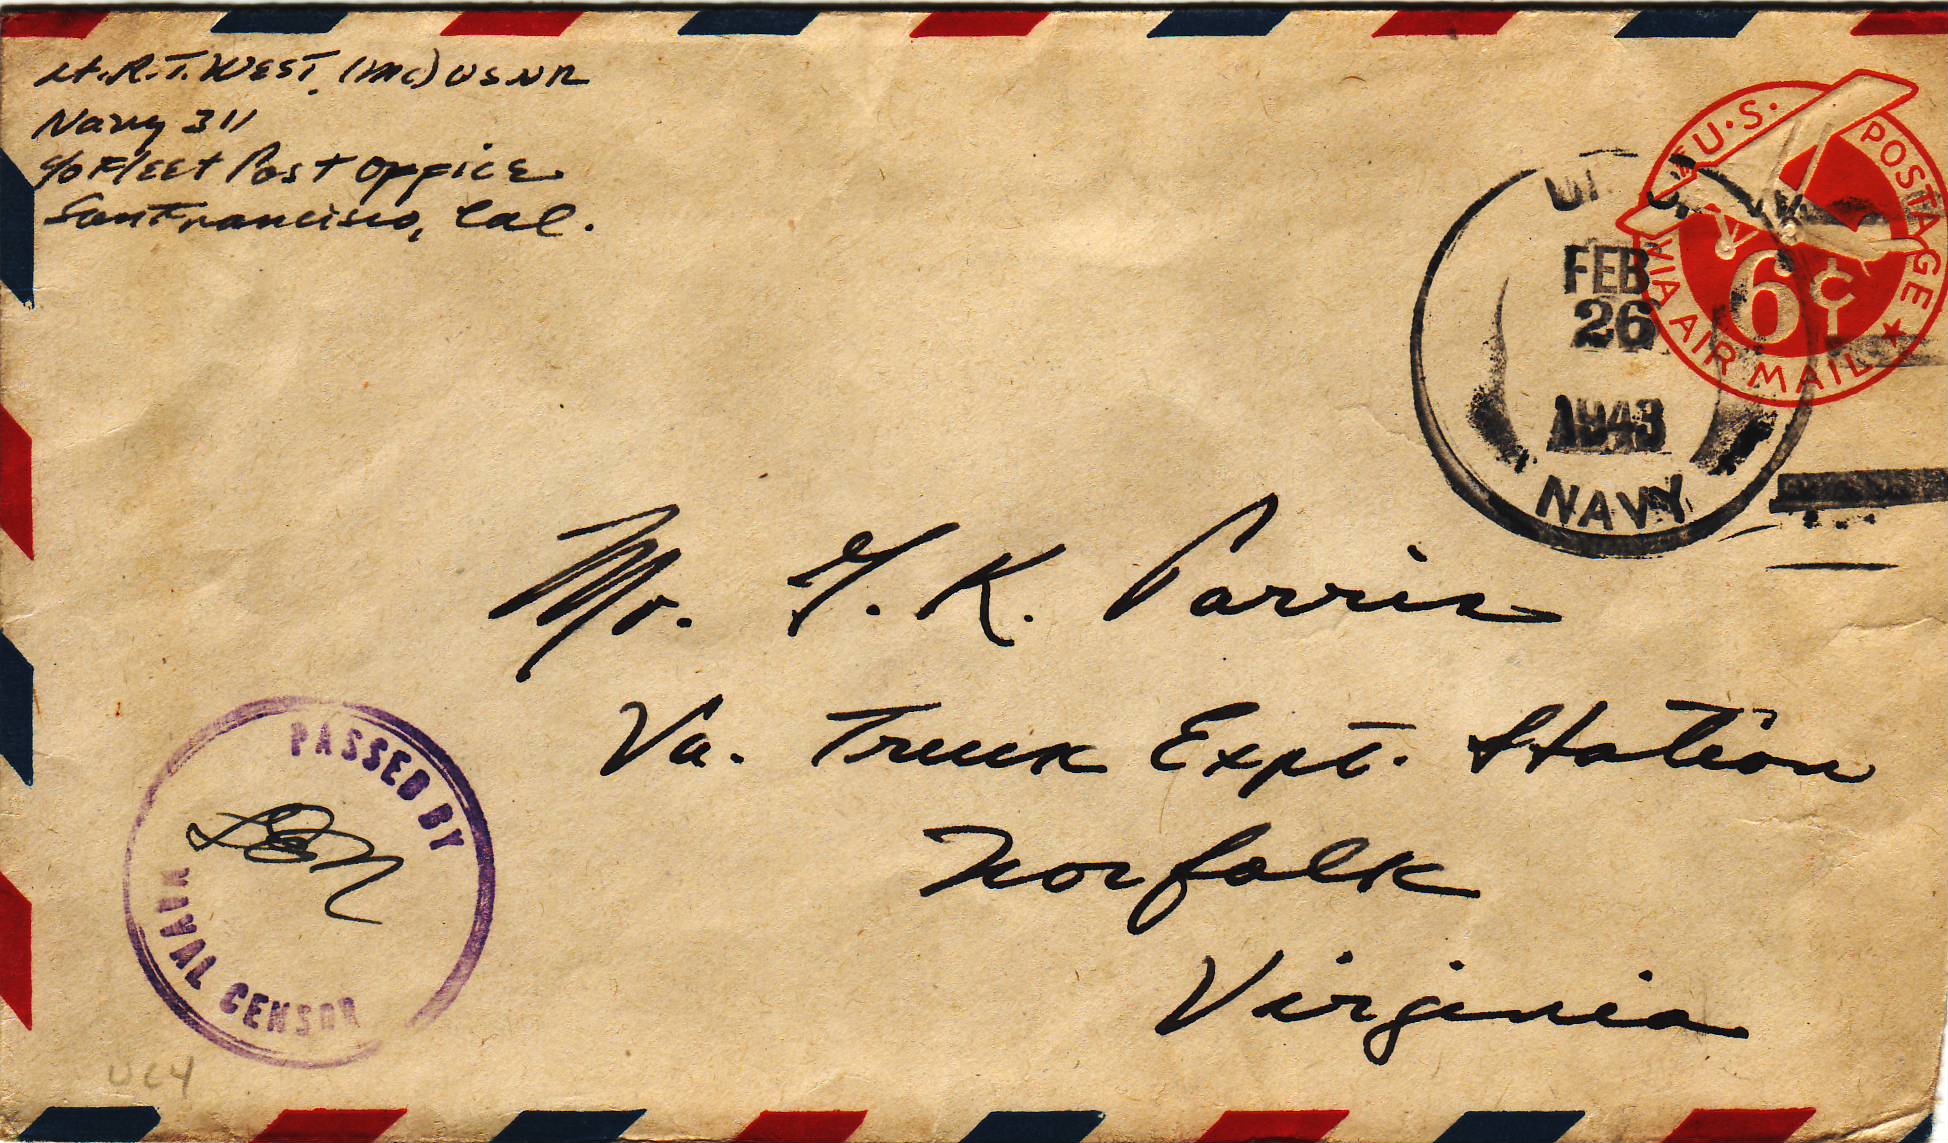 Lt. R. T. WEST. (MC) USNR
Navy 311
c/o Fleet Post Office
San Francisco, Cal.
U.S. POSTAGE
VIA AIR MAIL
6¢
FEB
26
1943
NAVY
Mr. G. K. Parris
Va. Truck Expt. Station
Norfolk
Virginia
PASSED BY
NAVAL CENSOR